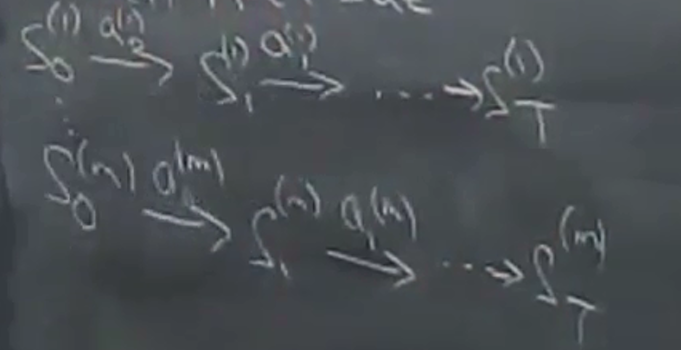 S_0^{(1)} \xrightarrow{a_0^{(1)}} S_1^{(1)} \xrightarrow{a_1^{(1)}} \cdots \rightarrow S_T^{(1)}
\vdots
S_0^{(m)} \xrightarrow{a_0^{(m)}} S_1^{(m)} \xrightarrow{a_1^{(m)}} \cdots \rightarrow S_T^{(m)}